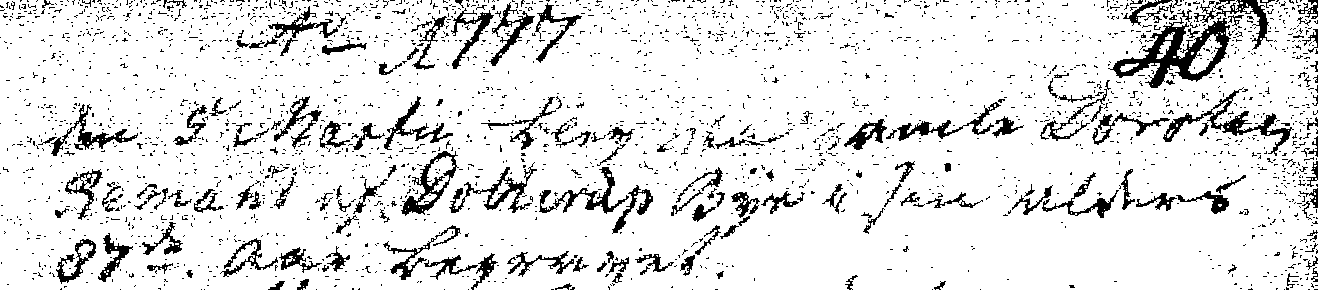 Aº 1777
40
den 5 Martii blev gamle Dorothea
Remand af Dotterup Bÿe i sin Alders
87de Aar begravet.